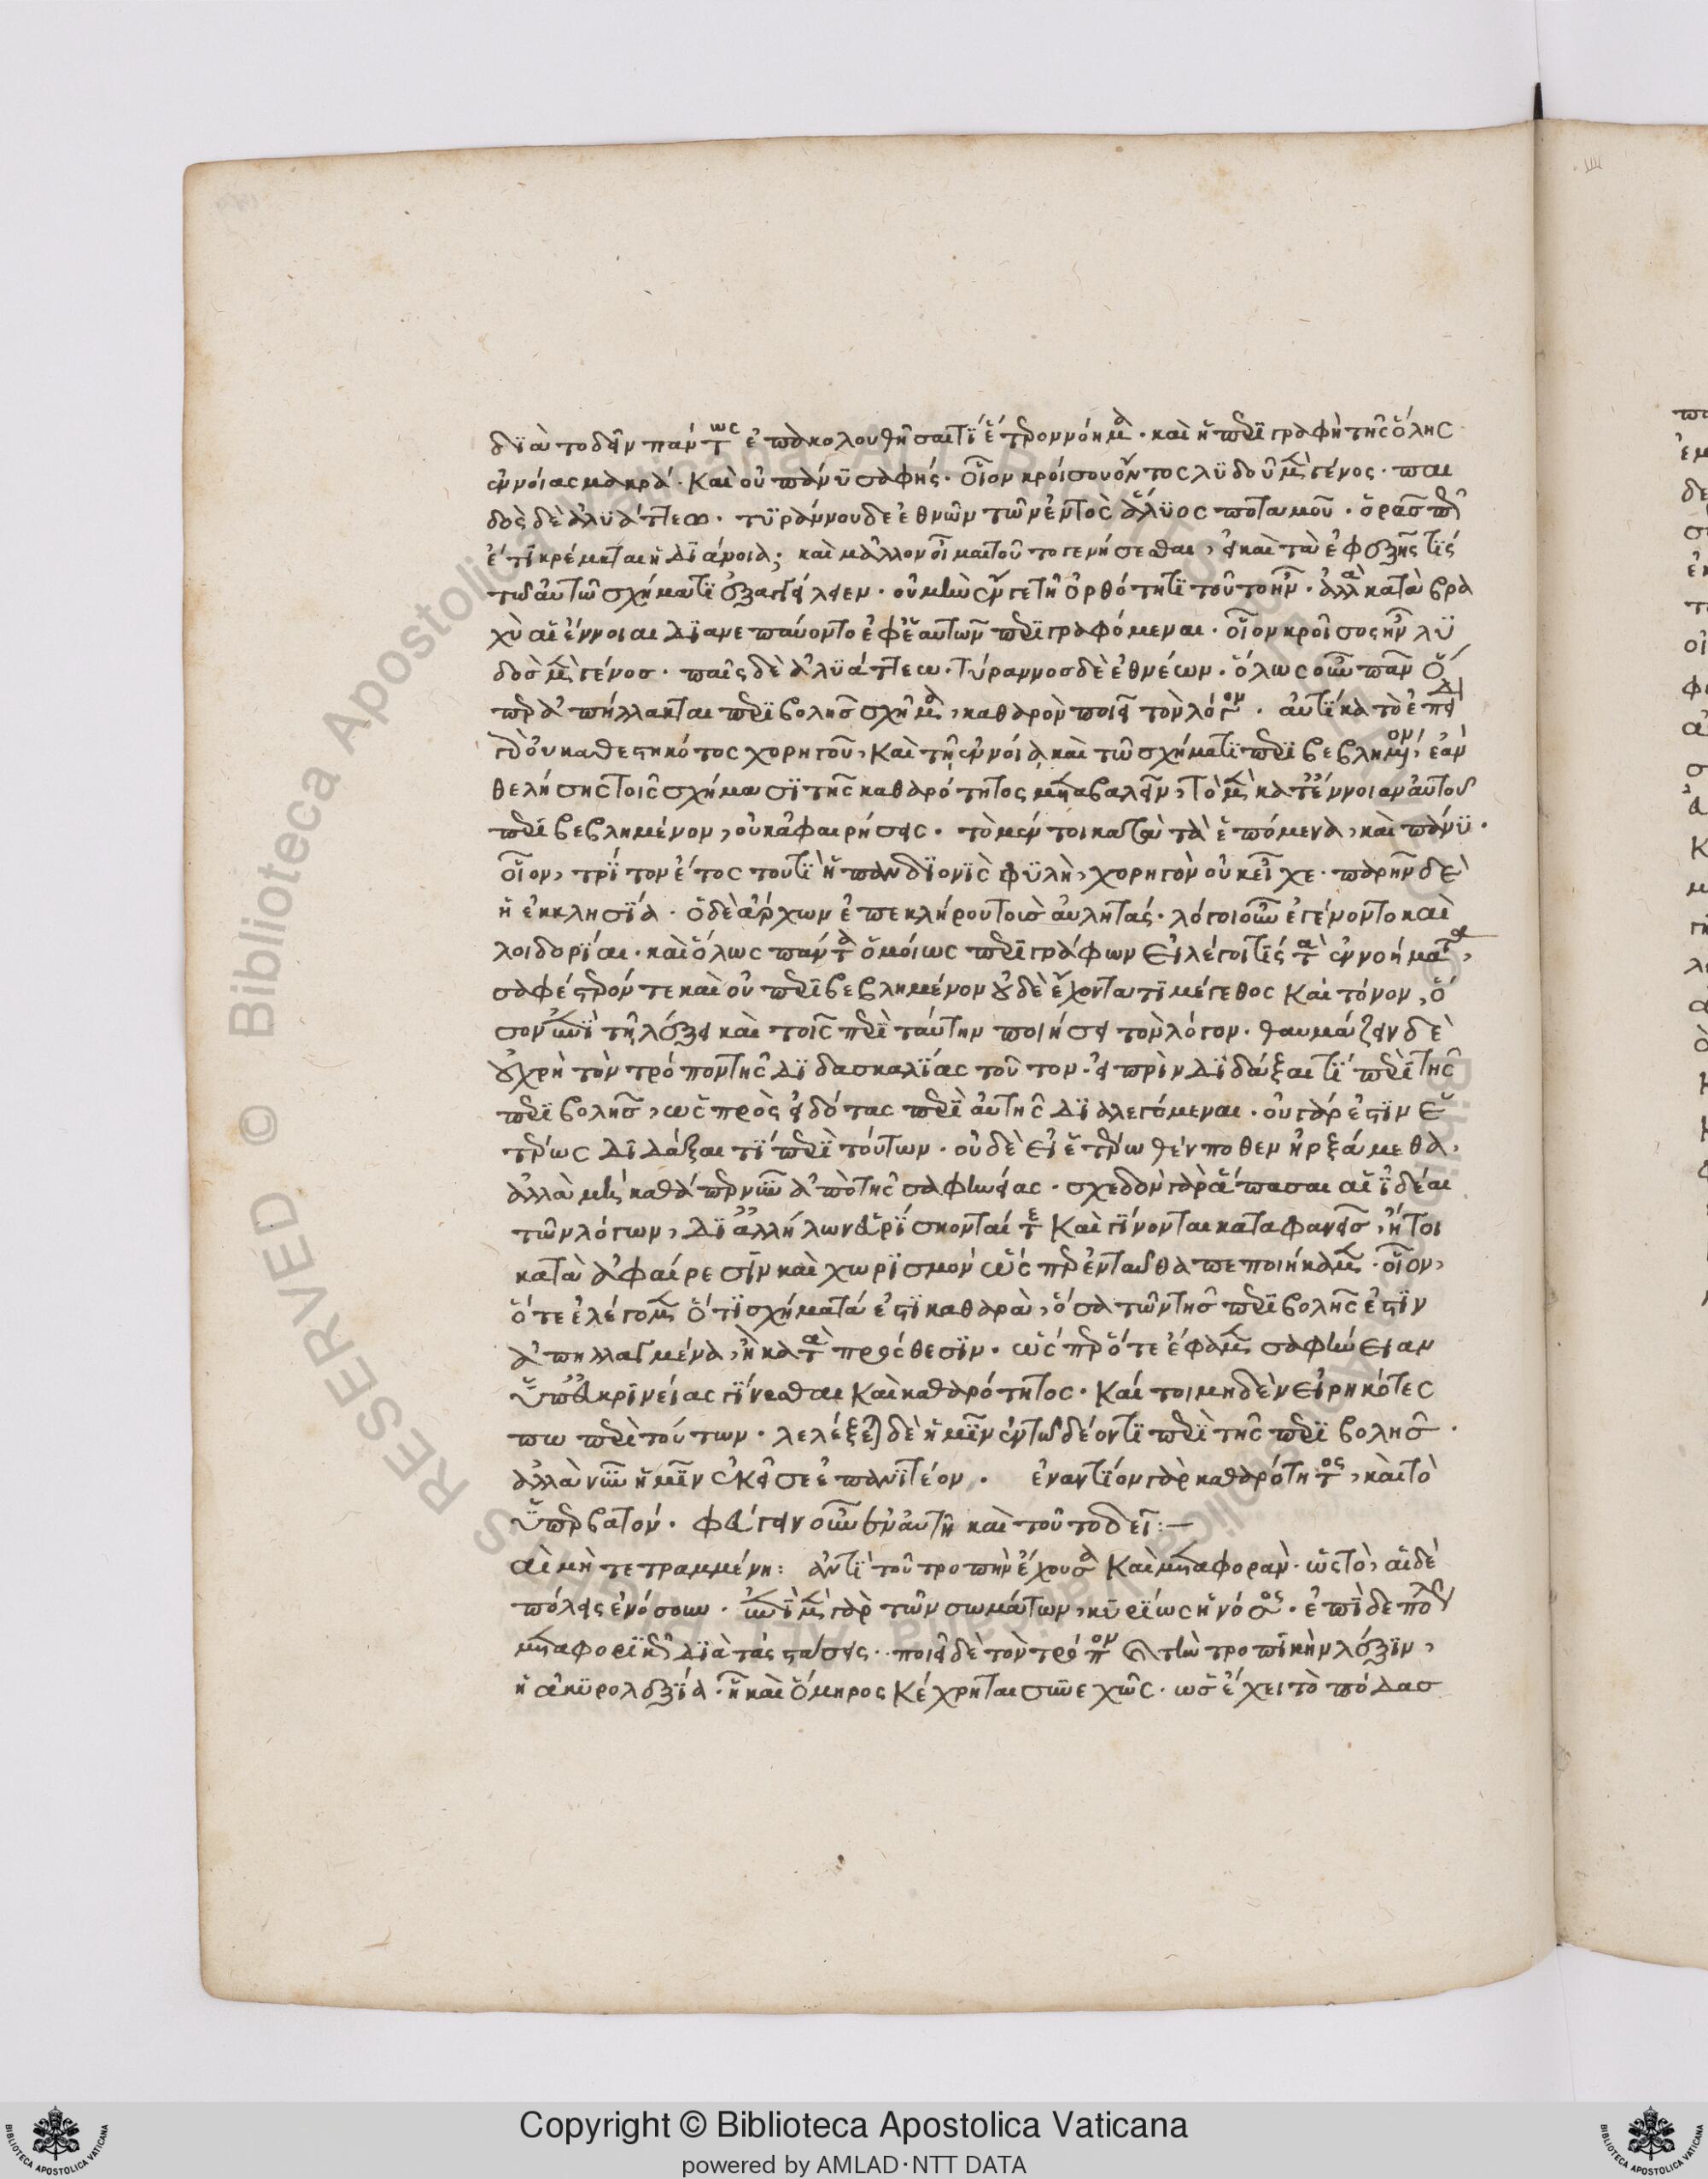 διὰ τὸ δεῖν πάντως ἐπακολουθῆσαί τι ἕτερον νόημα · καὶ ἡ περιγραφὴ τῆς ὅλης
ἐννοίας μακρά · Καὶ οὐ πάνυ σαφής · οἷον κροίσου ὄντος λυδοῦ μὲν γένος · παι
δὸς δὲ ἀλυάττεω · τυράννου δε ἐθνῶν τῶν ἐντὸς ἅλυος ποταμοῦ · ὁρᾶς πῶς
ἔτι κρέμαται ἡ διάνοια; καὶ μᾶλλον οἶμαι τοῦτο γενήσεσθαι, εἰ καὶ τὰ ἐφεξῆς τίς
τῶ αὐτῶ σχήματι ἐξαγγείλειεν · οὐ μὴν ἔν γε τῆ ὀρθότητι τοῦτο ἦν · ἀλλὰ κατὰ βρα
χὺ αἱ ἔννοιαι διανεπαύοντο ἐφ ἑαυτῶν περιγραφόμεναι · οἷον κροῖσος ἦν λυ
δὸς μὲν γένος · παῖς δὲ ἀλυάττεω · τύραννος δὲ ἐθνέων · ὅλως οὖν πᾶν ὅ
περ ἀπήλλακται περιβολῆς σχῆμα, καθαρὸν ποιεῖ τὸν λόγον · αὐτίκα τὸ ἐπειδὴ
γὰρ οὐ καθεστηκότος χορηγοῦ, Καὶ τῆ ἐννοία καὶ τῶ σχήματι περιβεβλημένον, ἐὰν
θελήσης τοῖς σχήμασι τῆς καθαρότητος μεταβαλεῖν, τὸ μὲν κατ ἔννοιαν αὐτοῦ
περιβεβλημένον, οὐκ ἀφαιρήσεις · τὸ μέν τοι κατὰ τὰ ἑπόμενα, καὶ πάνυ ·
οἷον, τρίτον ἔτος τουτὶ ἡ πανδιονὶς φυλὴ, χορηγὸν οὐκ εἶχε · παρῆν δὲ
ἡ ἐκκλησία · ὁ δὲ ἄρχων ἐπεκλήρου τοὺς αὐλητάς · λόγοι οὖν ἐγένοντο καὶ
λοιδορίαι · καὶ ὅλως πάντα ὁμοίως περιγράφων εἰ λέγοι τίς τὰ ἐννοήματα,
σαφέστερόν τε καὶ οὐ περιβεβλημένον οὐδὲ ἔχοντά τι μέγεθος Καὶ τόνον, ὅ
σον ἐπὶ τῆ λέξει καὶ τοῖς περὶ ταύτην ποιήσει τὸν λόγον · θαυμάζειν δὲ
οὐ χρὴ τὸν τρόπον τῆς διδασκαλίας τοῦτον · εἰ πρὶν διδάξαι τί περὶ τῆς
περιβολῆς, ὡς πρὸς εἰδότας περὶ αὐτῆς διαλεγόμεναι · οὐ γάρ ἐστιν ἑ
τέρως διδάξαι τί περὶ τούτων · οὐδὲ εἰ ἑτέρωθέν ποθεν ἠρξάμεθα,
ἀλλὰ μὴ καθάπερ νῦν ἀπὸ τῆς σαφηνείας · σχεδὸν γὰρ ἅπασαι αἱ ἰδέαι
τῶν λόγων, δι ἀλλήλων εὑρίσκονταί τε Καὶ γίνονται καταφανεῖς, ἤτοι
κατὰ ἀφαίρεσιν καὶ χωρισμὸν ὥσπερ ἐνταῦθα πεποιήκαμεν · οἷον,
ὅτε ἐλέγομεν ὅτι σχήματά ἐστι καθαρὰ, ὅσα τῶν τῆς περιβολῆς ἐστιν
ἀπηλλαγμένα, ἢ κατὰ πρόσθεσιν · ὥσπερ ὅτε ἔφαμεν σαφήνειαν
ὑπ εὐκρινείας γίνεσθαι Καὶ καθαρότητος · Καί τοι μηδὲν εἰρηκότες
πω περὶ τούτων · λελέξεται δὲ ἡμῖν ἐν τῶ δέοντι περὶ τῆς περιβολῆς ·
ἀλλὰ νῦν ἡμῖν ἐκεῖσε ἐπανιτέον · ἐναντίον γὰρ καθαρότητος, καὶ τὸ
ὑπερβατόν · φεύγειν οὖν ἐν αὐτῆ καὶ τοῦτο δεῖ :—
αἱ μὴ τετραμμένη : ἀντὶ τοῦ τροπὴν ἔχουσα Καὶ μεταφορὰν · ὡς τὸ, αἱ δὲ
πόλεις ἐνόσουν · ἐπὶ μὲν γὰρ τῶν σωμάτων, κυρίως ἡ νόσος · ἐπὶ δε πόλεων
μεταφορικῶς διὰ τὰς στάσεις · ποιεῖ δὲ τὸν τρόπον καὶ τὴν τροπικὴν λέξιν,
ἡ ἀκυρολεξία · ἧ καὶ ὅμηρος Κέχρηται συνεχῶς · ὡς ἔχει τὸ πόδας
Copyright © Biblioteca Apostolica Vaticana
powered by AMLAD·NTT DATA